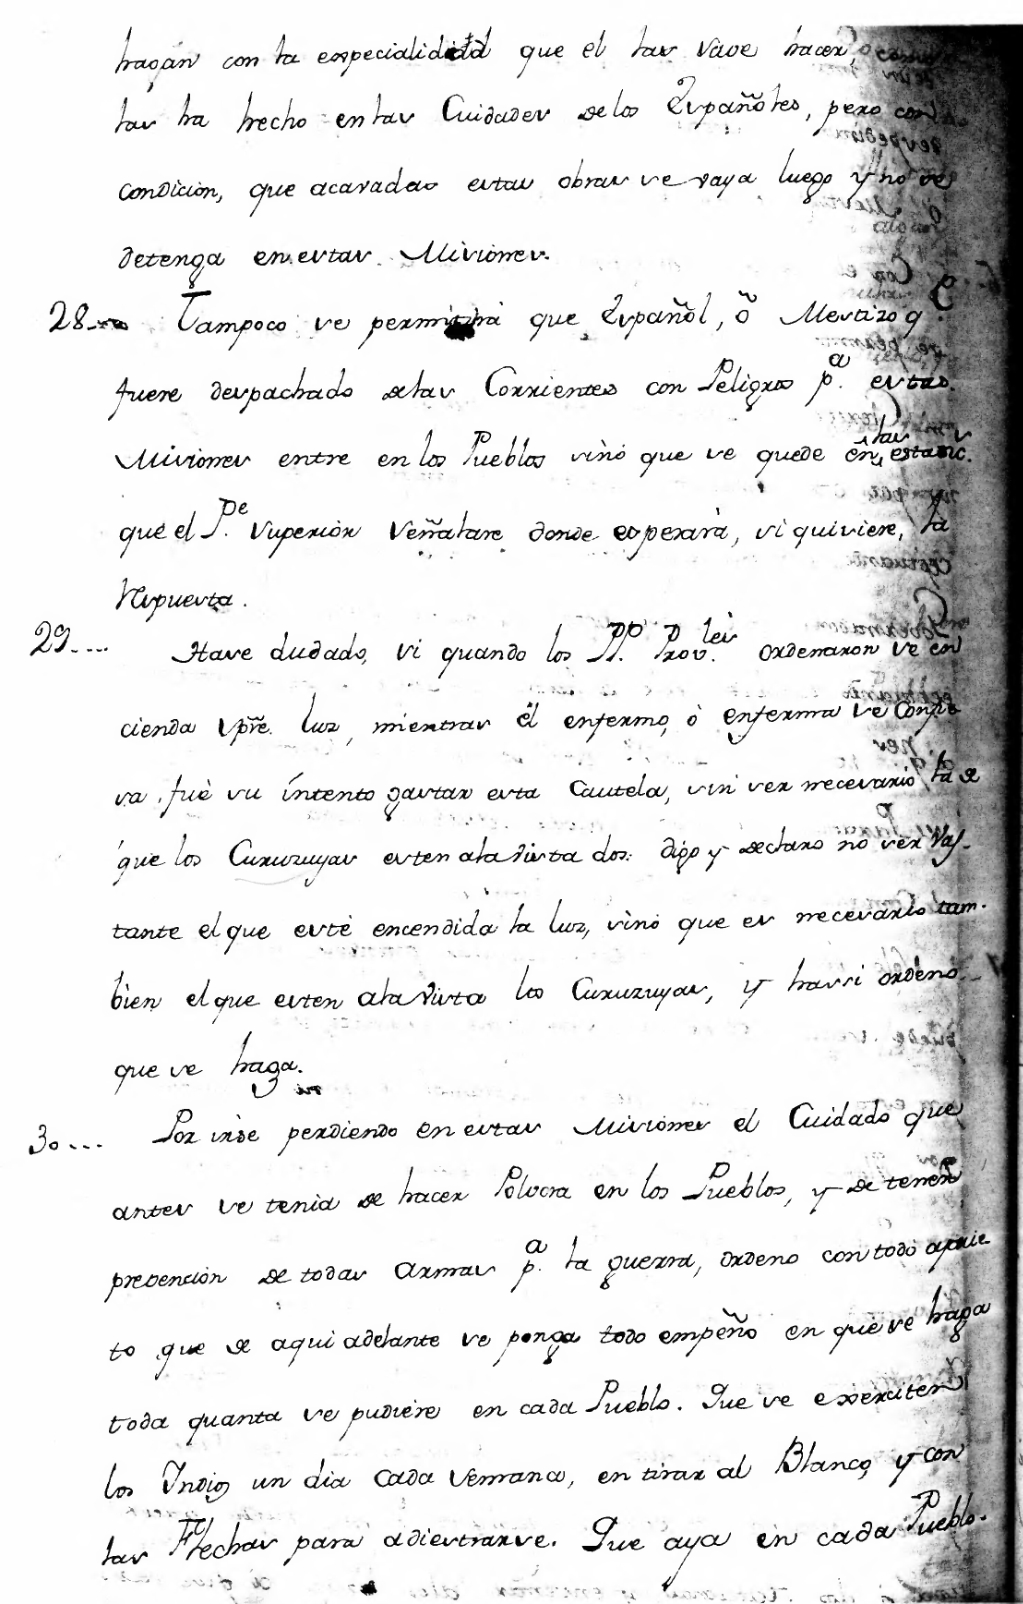 hagan con la especialidad que el las save hacer, o como
las ha hecho en las Cuidades de los Españoles, pero con
condicion, que acavadas estas obras se vaya luego y no se
detenga en estas Misiones.
28... Tampoco se permitirá que Español, ô Mestizo q.e
fuere despachado de las Corrientes con Peligro p.a estas
Misiones entre en los Pueblos sinó que se quede en las estanc.s
que el P.e Superior Señalare donde esperará, si quisiere, la
Respuesta.
29.... Hase dudado, si quando los PP. Prov.les ordenaron se en
cienda Spre. luz, mientras él enfermo, ò enferma se Confie
sa, fuè su intento gastar esta Cautela, sin ser necesario la de
que los Curuzuyas esten ala vista dos: digo y declaro no ser vas-
tante el que esté encendida la luz, sinó que es necesario tam-
bien el que esten ala vista los Curuzuyas, y hassi ordeno
que se haga.
30... Por irse perdiendo en estas Misiones el Cuidado que
antes se tenia de hacer Polvora en los Pueblos, y de tener
prevención de todas Armas p.a la guerra, ordeno con todo aprie
to que de aqui adelante se ponga todo empeño en que se haga
toda quanta se pudiere en cada Pueblo. Que se exerciten
los Indios un dia cada Semana, en tirar al Blanco, y con
las Flechas para adiestrarse. Que aya en cada Pueblo.